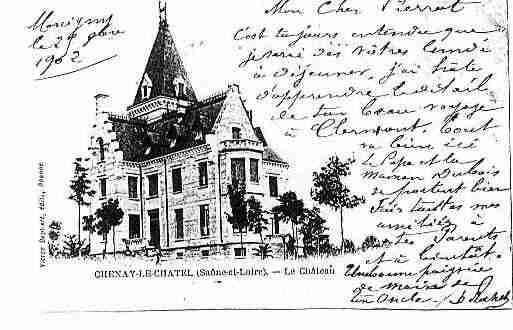 le 29
1902
Mon Cher Pierrot
C'est toujours entendu que
je serai des vôtres lundi
à déjeuner, j'ai hâte
d'apprendre le détail
de ton beau voyage
à Clermont. Tout
va bien ici
Le Papa et la
maison Dubois
se portent bien
Fais toutes mes
amitiés à
tes Parents
et à bientôt.
Une bonne poignée
de mains de
ton Oncle
CHENAY-LE-CHATEL (Saône-et-Loire). — Le Château
édit., Roanne